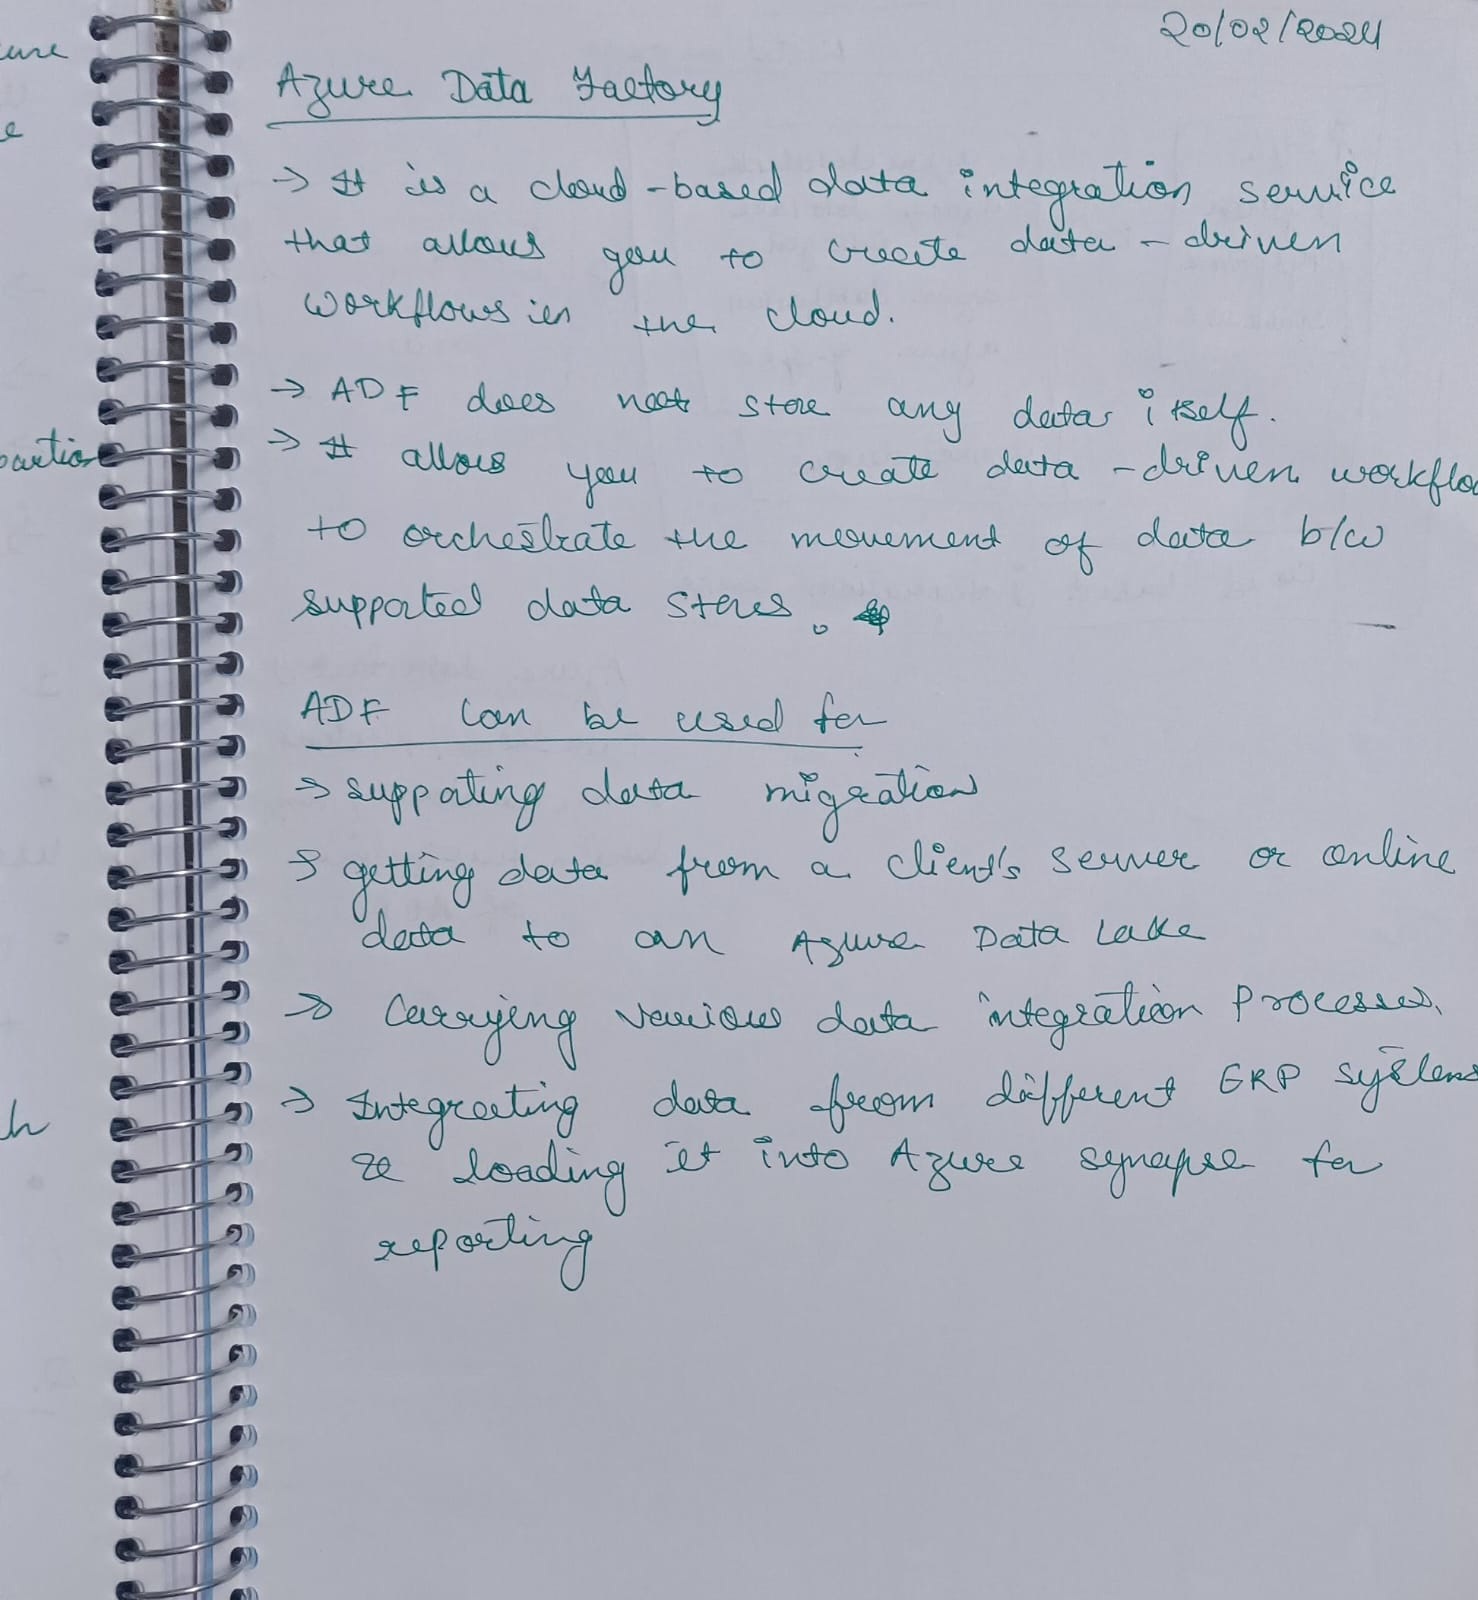 20/02/2024
Azure Data Factory
→ It is a cloud-based data integration service
that allows you to create data-driven
workflows in the cloud.
→ ADF does not store any data itself.
→ It allows you to create data-driven workflo
to orchestrate the movement of data b/w
supported data stores.
ADF can be used for
→ supporting data migration
→ getting data from a client's server or online
data to an Azure Data Lake
→ Carrying various data integration processes.
→ Integrating data from different ERP systems
& loading it into Azure synapse for
reporting